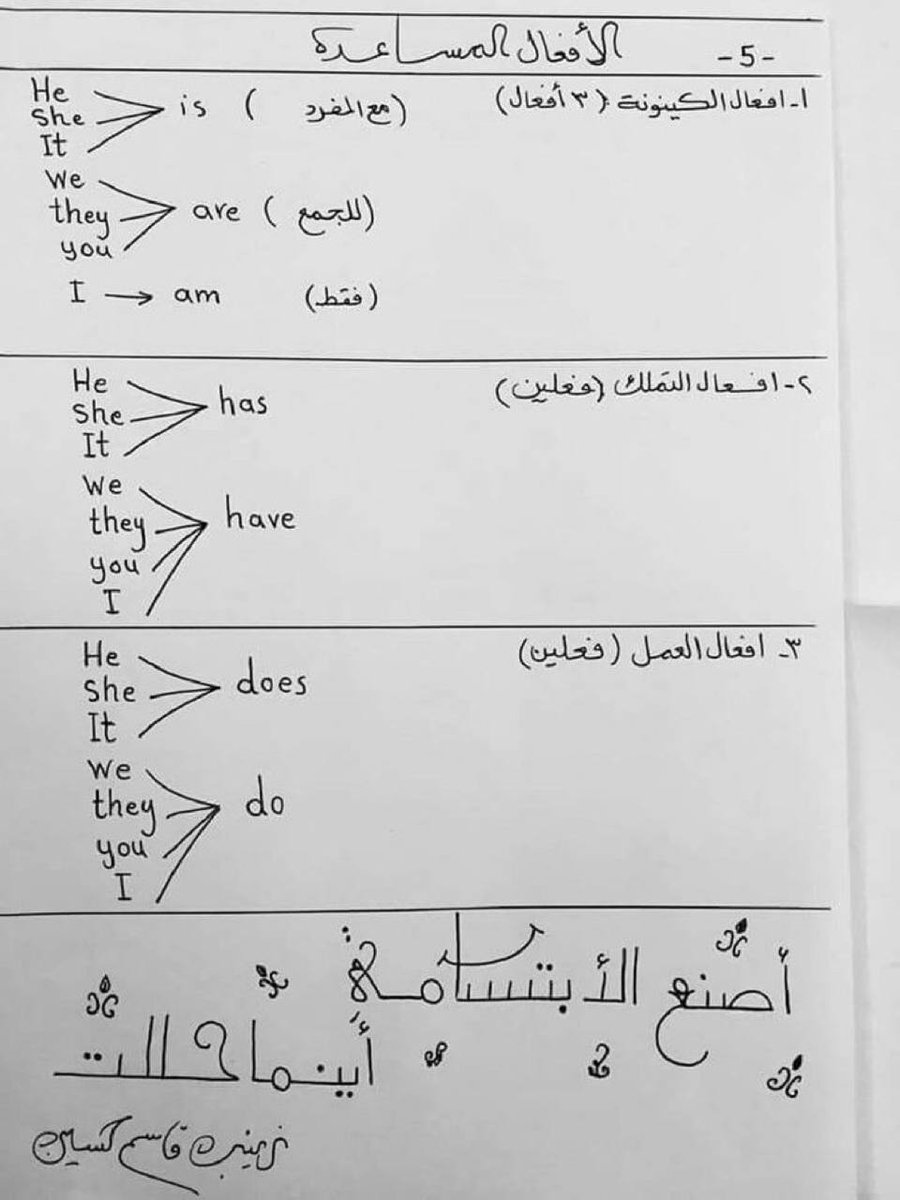 -5- الأفعال المساعدة
١- افعال الكينونة (٣ أفعال)
He
She
It
is (مع المفرد)
We
they
you
are (للجمع)
I → am (فقط)
٢- افعال التملك (فعلين)
He
She
It
has
We
they
you
I
have
٣- افعال العمل (فعلين)
He
She
It
does
We
they
you
I
do
أصنع الأبتسامة
أينما
زينب قاسم